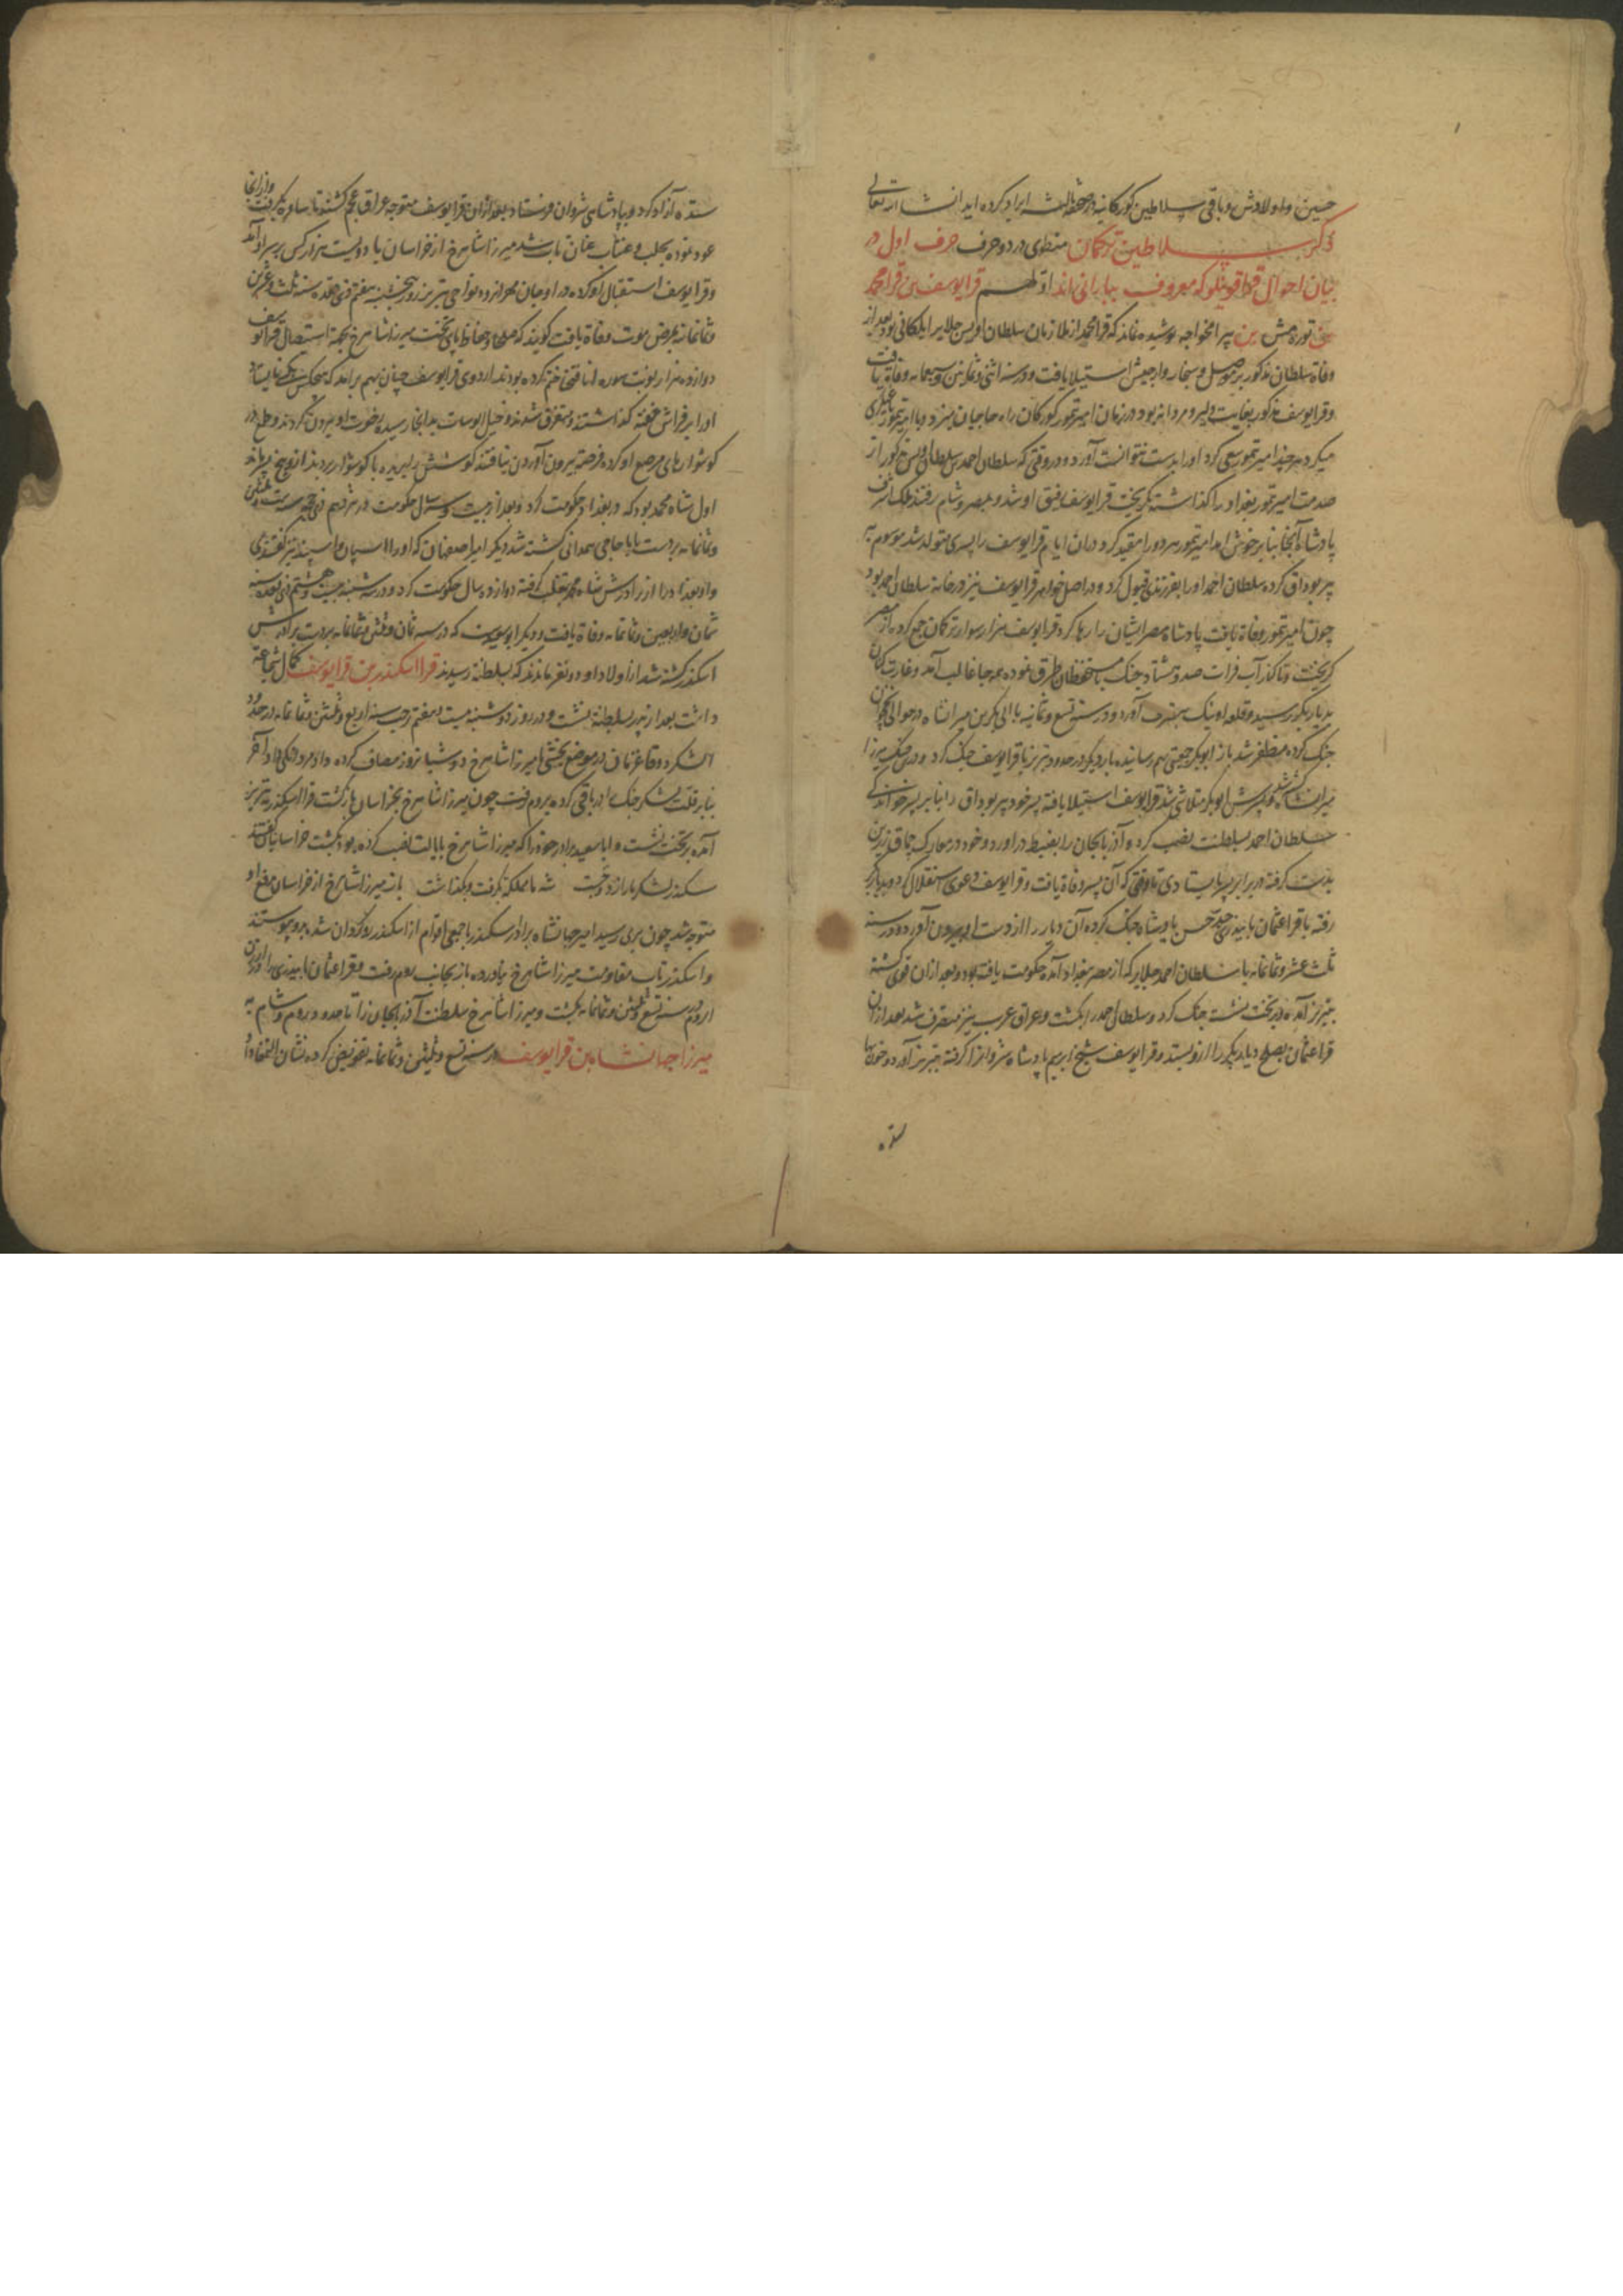 حسین و اولادش و باقی سلاطین کورکانیه در صحفه ثالثه ایراد کرده اید انشا الله تعالی
ذکر سلاطین ترکمان منطوی در دو حرف حرف اول در
بیان احوال قراقوینلو که معروف ببارانی اند اولهم قرایوسف بن قرامحمد
بن تورمش بن بیرامخواجه پوشیده نماند که قرامحمد از ملازمان سلطان اویس جلایر ایلکانی بود بعد از
وفاة سلطان مذکور بر موصل و سنجار و ارجیش استیلا یافت و در سنه اثنی و ثمانین و سبعمایه وفاة یافت
و قرایوسف مذکور بغایت دلیر و مردانه بود در زمان امیر تیمور کورکان راه حاجیان میزد و با امیر تیمور
میکرد هر چند امیر تیمور سعی کرد او را بدست نتوانست آورد و در وقتی که سلطان احمد بن سلطان اویس مذکور از
صدمت امیر تیمور بغداد را کذاشته بکریخت قرایوسف رفیق او شد و بمصر و شام رفتند ملک اشرف
پادشاه آنجا بنابر خوش آمد امیر تیمور هر دو را مقید کرد و دران ایام قرایوسف را پسری متولد شد موسوم به
پیر بوداق کرده سلطان احمد او را بفرزندی قبول کرد و در اصل خواهر قرایوسف نیز در خانه سلطان احمد بود
چون امیر تیمور وفاة یافت پادشاه مصر ایشان را رها کرد قرایوسف هزار سوار ترکمان جمع کرده از مصر
کریخت و تا کنار آب فرات صد و هشتاد جنک با مستحفظان طرق نموده همه جا غالب آمد و غارت کنان
بدیاربکر رسید و قلعه اونیک بتصرف آورد و در سنه تسع و ثمانیه با ابی بکر بن میرانشاه در حوالی نخجوان
جنک کرده مظفر شد باز ابوبکر جمعیتی بهم رسانیده بار دیکر در حدود تبریز با قرایوسف جنک کرد و درین جنک میرزا
میرانشاه کشته شد و پسرش ابوبکر متلاشی شد قرایوسف استیلا یافته پسر خود پیر بوداق را بنابر پسر خواندکی
سلطان احمد بسلطنت نصب کرد و آذربایجان را بضبط در آورد و خود در معارک چماق زرین
بدست کرفته در برابر پسر بایستادی تا وقتی که آن پسر وفاة یافت و قرایوسف دعوی استقلال کرد و بدیاربکر
رفته با قراعثمان بایندری جد حسن پادشاه جنک کرده آن دیار را از دست او بیرون آورد و در سنه
ثلث عشر و ثمانمایه با سلطان احمد جلایر که از مصر ببغداد آمده حکومت یافته بود و بعد ازان قوی کشته
بتبریز آمده در تخت نشست جنک کرد و سلطان احمد را بکشت و عراق عرب نیز متصرف شد بعد ازان
قراعثمان بصلح دیاربکر را ازو بستد و قرایوسف شیخ ابرهیم پادشاه شروانرا کرفته بتبریز آورد و خون بها
ستده
ستده آزاد کرد و بپادشاهی شروان فرستاد بعد ازان قرایوسف متوجه عراق عجم کشته تا ساوه بکرفت و از آنجا
عود نموده بحلب و عنتاب عنان تاب شد میرزا شاهرخ از خراسان با دویست هزار کس بر سر او آمد
و قرایوسف استقبال او کرده در اوجان نواحی تبریز روز پنجشنبه هفتم ذی قعده سنه ثلث و عشرین
و ثمانمایه بمرض موت وفاة یافت کویند که صلحا و حفاظ پای تخت میرزا شاهرخ بجهة استیصال قرایوسف
دوازده هزار نوبت سوره انا فتحنا ختم کرده بودند اردوی قرایوسف چنان بهم برآمد که هیچکس
او را بر فراش خفته کذاشتند و متفرق شدند و خیل ایوسات بدانجا رسیده رخوت او بیرون کردند و طمع در
کوشوارهای مرصع او کرده فرصة بیرون آوردن نیافتند کوشش ببریده با کوشوار بردند ازو پنج پسر ماند
اول شاه محمد بود که در بغداد حکومت کرد و بعد از بیست و سه سال حکومت در هژدهم ذی حجه سنه ست و ثلثین
و ثمانمایه بدست بابا حاجی همدانی کشته شد دیکر امیر اصفهان که او را اسپان و اسپند نیز کفتندی
و او بغداد را از برادرش شاه محمد بتغلب کرفته دوازده سال حکومت کرد و در سه شنبه بیست و هشتم ذی قعده سنه
ثمان و اربعین و ثمانمایه وفاة یافت و دیکر ابوسعید که در سنه ثمان و ثلثین و ثمانمایه بدست برادرش
اسکندر کشته شد از اولاد او دو نفر ماندند که بسلطنة رسیدند قرا اسکندر بن قرایوسف کمال شجاعة
داشت بعد از پدر بسلطنة نشست و در روز دوشنبه بیست و هفتم رجب سنه اربع و عشرین و ثمانمایه در حدود
الشکرد در موضع یخشی با میرزا شاهرخ دو شبانروز مصاف کرده داد مردانکی داد آخر
بنابر قلت لشکر جنک را در باقی کرده بروم رفت چون میرزا شاهرخ بخراسان بازکشت قرا اسکندر بتبریز
آمده بر تخت نشست و ابا سعید برادر خود را که میرزا شاهرخ بایالت نصب کرده بود بکشت خراسانیان کفتند
سکندر لشکر ما را زد و جست شه ما مملکة بکرفت و بکذاشت باز میرزا شاهرخ از خراسان بدفع او
متوجه شد چون بری رسید امیر جهانشاه برادر سکندر با جمعی اقوام از اسکندر روکردان شده برو پیوستند
و اسکندر تاب مقاومت میرزا شاهرخ نیاورده باز بجانب روم رفت و قراعثمان بایندری را در ارزن
الروم سنه تسع و ثلثین و ثمانمایه بکشت و میرزا شاهرخ سلطنت آذربایجان را تا حدود روم و شام به
میرزا جهانشاه بن قرایوسف در سنه تسع و ثلثین و ثمانمایه تفویض کرده نشان التمغا داد